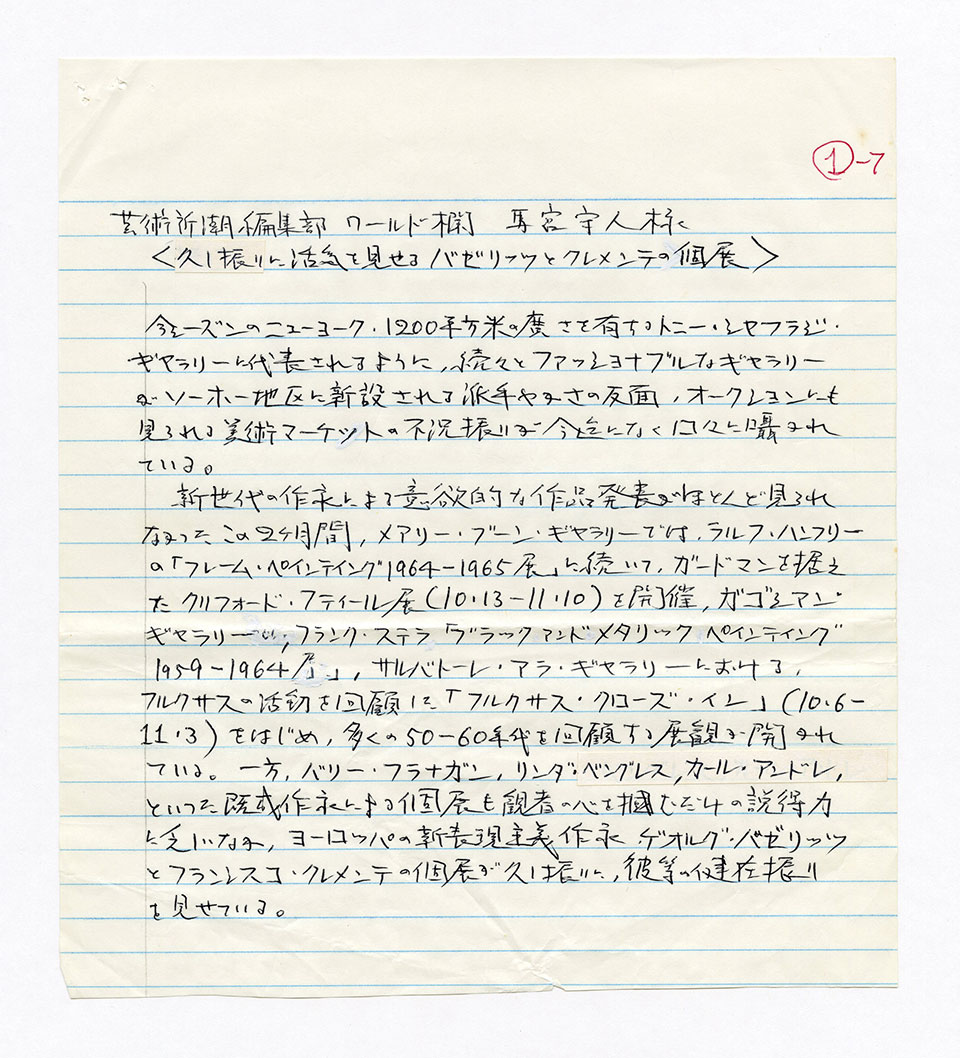 ①-7
芸術新潮編集部 ワールド欄 馬宮守人様
〈久し振りに活気を見せるバゼリッツとクレメンテの個展〉
今シーズンのニューヨーク・1200平方米の広さを有するトニー・シャフラジ・
ギャラリーに代表されるように,続々とファッショナブルなギャラリー
がソーホー地区に新設される派手やかさの反面,オークションにも
見られる美術マーケットの不況振りが今迄になく口々に囁かれ
ている。
新世代の作家による意欲的な作品発表がほとんど見られ
なかったこの2ヶ月間,メアリー・ブーン・ギャラリーでは,ラルフ・ハンフリー
の「フレーム・ペインティング1964-1965展」に続いて,ガードマンを据え
たクリフォード・スティール展(10・13-11・10)を開催,ガゴシアン・
ギャラリーが,フランク・ステラ「ブラックアンドメタリックペインティング
1959-1964展」,サルバトーレ・アラ・ギャラリーにおける,
フルクサスの活動を回顧した「フルクサス・クローズ・イン」(10・6-
11・3)をはじめ,多くの50-60年代を回顧する展観が開かれ
ている。一方,バリー・フラナガン,リンダ・ベングレス,カール・アンドレ,
といった既成作家による個展も観者の心を掴むだけの説得力
に乏しいなか,ヨーロッパの新表現主義作家 ゲオルグ・バゼリッツ
とフランシスコ・クレメンテの個展が久し振りに,彼等の健在振り
を見せている。